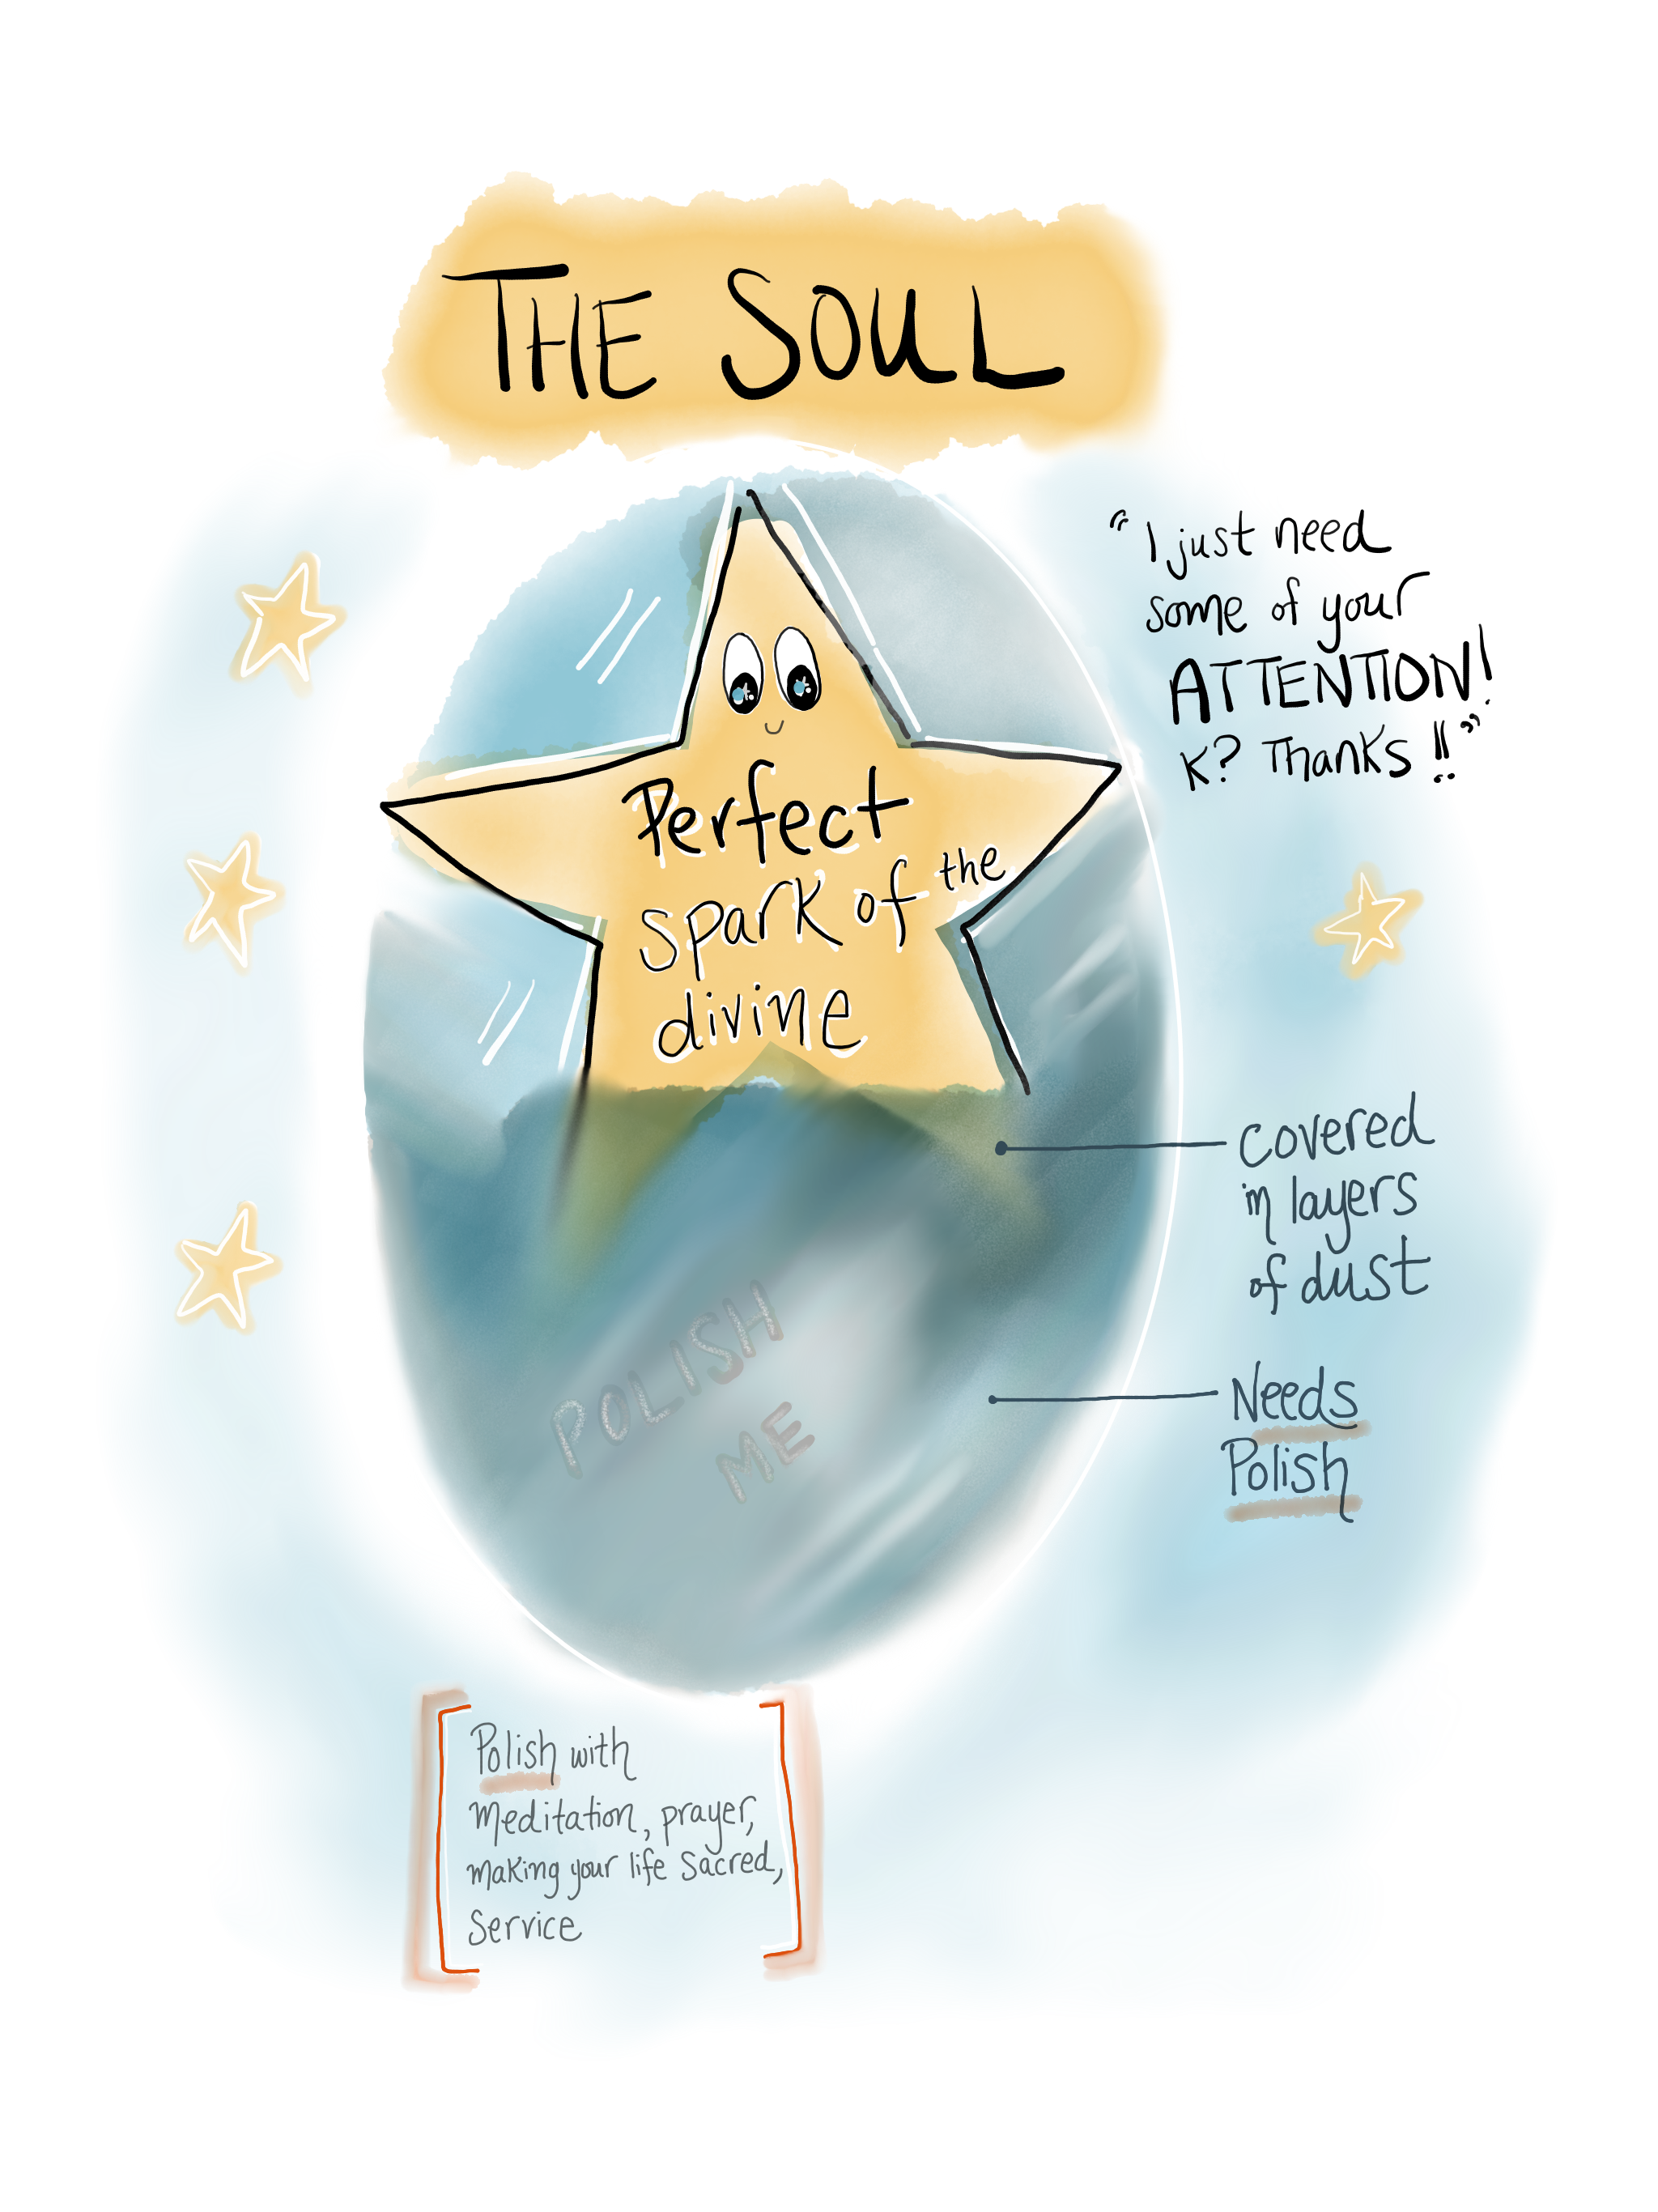 THE SOUL
"I just need
some of your
ATTENTION!
K? Thanks!!"
Perfect
spark of the
divine
Covered
in layers
of dust
Needs
Polish
POLISH
ME
Polish with
Meditation, prayer,
making your life sacred,
Service